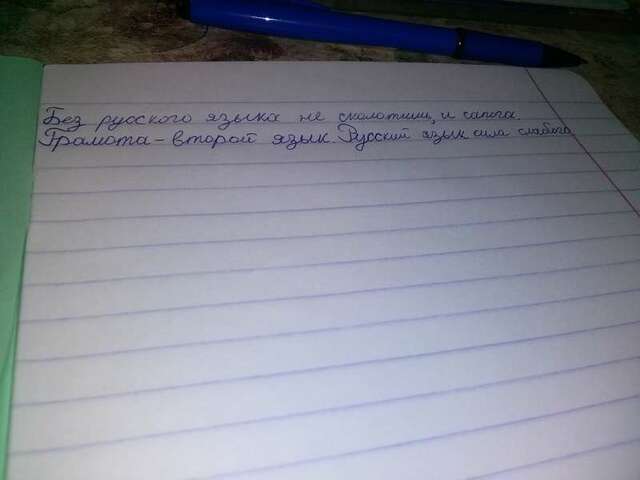 Без русского языка не сколотишь и сапога.
Грамота - второй язык. Русский язык сила слабого